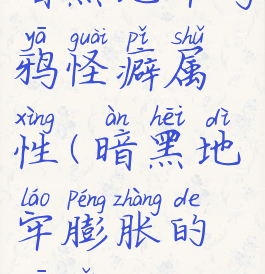 yā guài pǐ shǔ
鸦怪癖属
xìng àn hēi dì
性(暗黑地
láo péng zhàng de
牢膨胀的